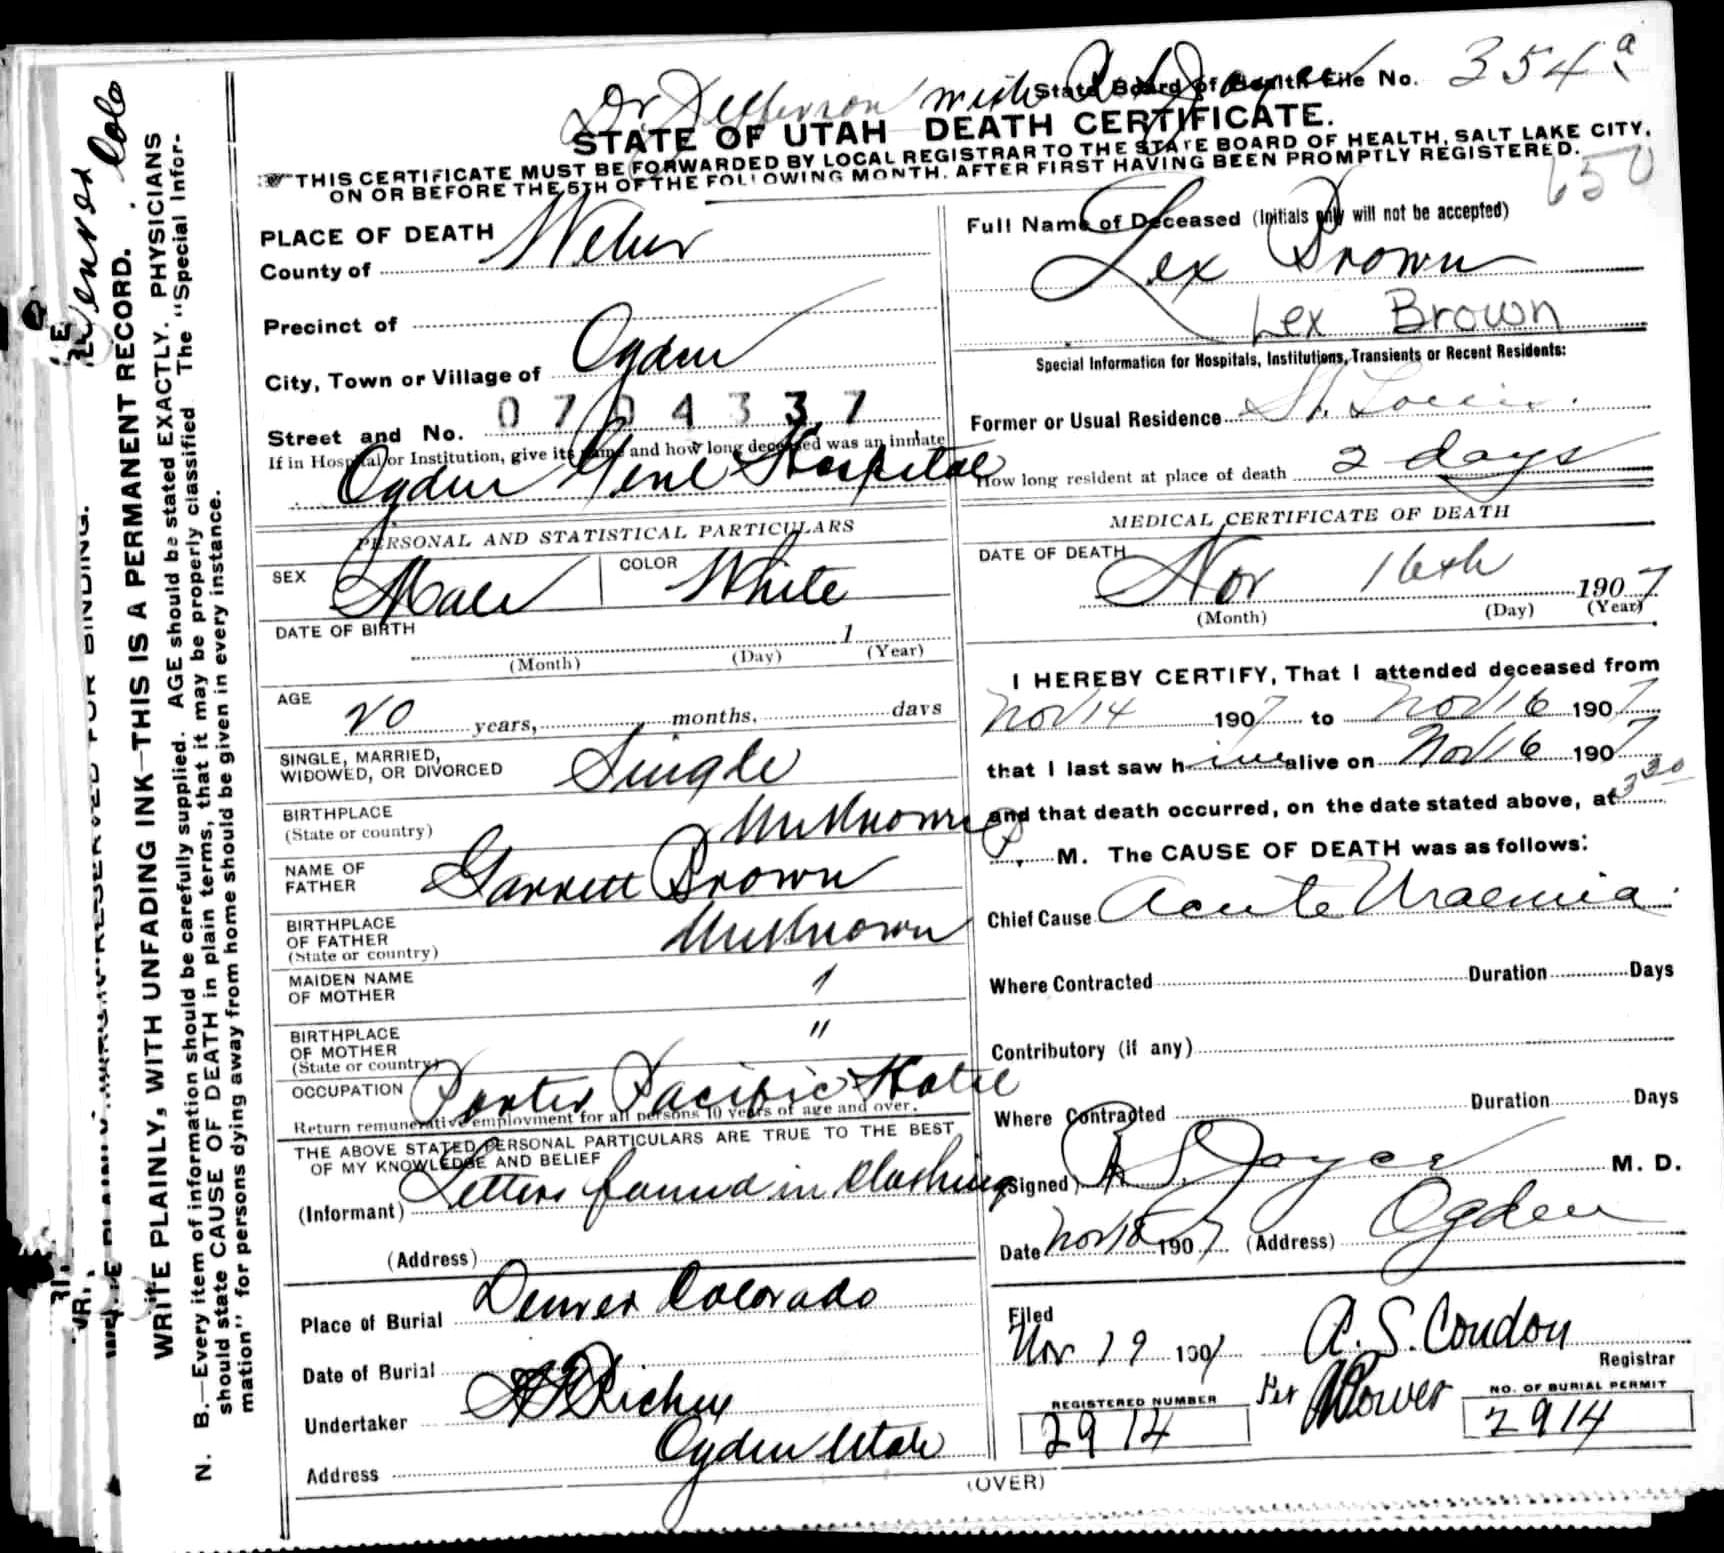 Dr Jefferson with
State Board of Health File No. 354 a
STATE OF UTAH DEATH CERTIFICATE.
THIS CERTIFICATE MUST BE FORWARDED BY LOCAL REGISTRAR TO THE STATE BOARD OF HEALTH, SALT LAKE CITY,
ON OR BEFORE THE 5TH OF THE FOLLOWING MONTH, AFTER FIRST HAVING BEEN PROMPTLY REGISTERED.
650
PLACE OF DEATH
County of Weber
Precinct of
City, Town or Village of Ogden
0704337
Street and No.
If in Hospital or Institution, give its name and how long deceased was an inmate
Ogden Genl Hospital
PERSONAL AND STATISTICAL PARTICULARS
SEX Male COLOR White
DATE OF BIRTH 1
(Month) (Day) (Year)
AGE 20 years, months, days
SINGLE, MARRIED,
WIDOWED, OR DIVORCED Single
BIRTHPLACE
(State or country) Unknown
NAME OF
FATHER Garrett Brown
BIRTHPLACE
OF FATHER
(State or country) Unknown
MAIDEN NAME
OF MOTHER
BIRTHPLACE
OF MOTHER "
(State or country)
OCCUPATION Porter Pacific Hotel
Return remunerative employment for all persons 10 years of age and over.
THE ABOVE STATED PERSONAL PARTICULARS ARE TRUE TO THE BEST
OF MY KNOWLEDGE AND BELIEF
(Informant) Letters found in Clothing
(Address)
Place of Burial Denver Colorado
Date of Burial
Undertaker Richey
Ogden Utah
Address
Full Name of Deceased (Initials only will not be accepted)
Lex Brown
Lex Brown
Special Information for Hospitals, Institutions, Transients or Recent Residents:
Former or Usual Residence St. Louis.
How long resident at place of death 2 days
MEDICAL CERTIFICATE OF DEATH
DATE OF DEATH
Nov 16th 1907
(Month) (Day) (Year)
I HEREBY CERTIFY, That I attended deceased from
Nov 14 1907 to Nov 16 1907
that I last saw him alive on Nov 16 1907
and that death occurred, on the date stated above, at 3 30
P. M. The CAUSE OF DEATH was as follows:
Chief Cause Acute Uraemia.
Where Contracted Duration Days
Contributory (if any)
Where Contracted Duration Days
(Signed) R S Joyce M. D.
Date Nov 18 1907 (Address) Ogden
Filed
Nov 19 1907 A. S. Condon
Registrar
REGISTERED NUMBER
2914
Per Power
NO. OF BURIAL PERMIT
2914
(OVER)
Denver Colo
WRITE PLAINLY, WITH UNFADING INK—THIS IS A PERMANENT RECORD.
N. B.—Every item of information should be carefully supplied. AGE should be stated EXACTLY. PHYSICIANS
should state CAUSE OF DEATH in plain terms, that it may be properly classified. The "Special Infor-
mation" for persons dying away from home should be given in every instance.